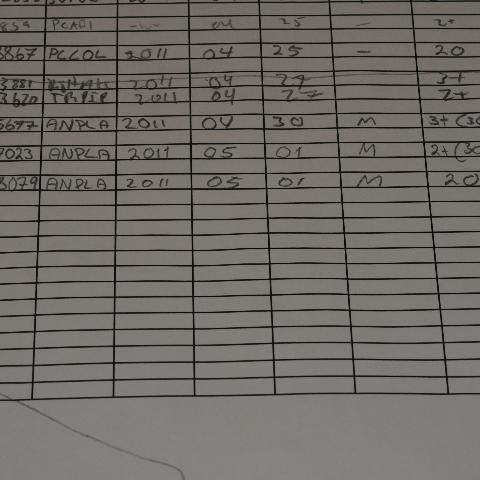 859 PCAPI 04 25 — 2+
3867 PCCOL 2011 04 25 — 20
3881 2011 04 27 3+
3620 TRPIP 2011 04 27 2+
5677 ANPLA 2011 04 30 M 3+ (30
7023 ANPLA 2011 05 01 M 2+ (30
8079 ANPLA 2011 05 01 M 20